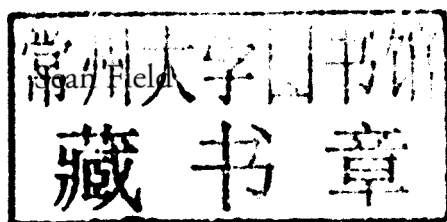 常州大学图书馆
Sean Field
藏书章